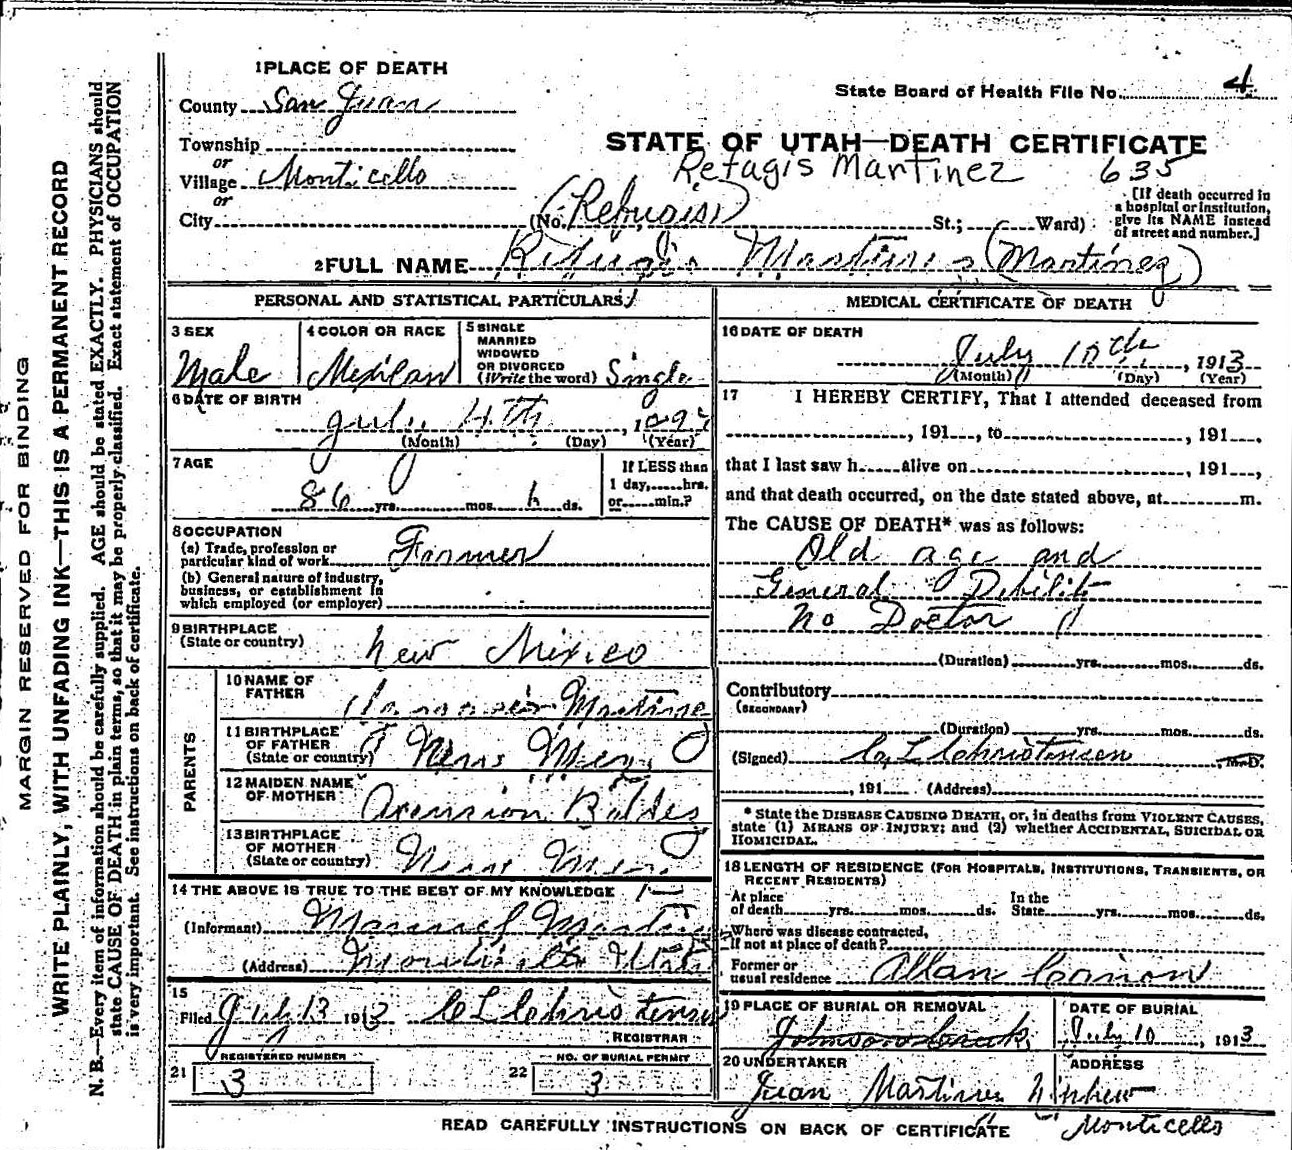 MARGIN RESERVED FOR BINDING
WRITE PLAINLY, WITH UNFADING INK—THIS IS A PERMANENT RECORD
N. B.—Every item of information should be carefully supplied. AGE should be stated EXACTLY. PHYSICIANS should
state CAUSE OF DEATH in plain terms, so that it may be properly classified. Exact statement of OCCUPATION
is very important. See instructions on back of certificate.
1 PLACE OF DEATH
County San Juan
State Board of Health File No. 4
Township
or
Village Monticello
or
City
STATE OF UTAH—DEATH CERTIFICATE
Refagis Martinez 635
(No. (Refugis) St.; Ward)
[If death occurred in
a hospital or institution,
give its NAME instead
of street and number.]
2 FULL NAME Refugis Martines (Martinez)
PERSONAL AND STATISTICAL PARTICULARS
3 SEX
Male
4 COLOR OR RACE
Mexican
5 SINGLE
MARRIED
WIDOWED
OR DIVORCED
(Write the word) Single
6 DATE OF BIRTH
July 4th
(Month) (Day) (Year)
7 AGE
86 yrs. mos. 6 ds.
If LESS than
1 day, hrs.
or min.?
8 OCCUPATION
(a) Trade, profession or
particular kind of work Farmer
(b) General nature of industry,
business, or establishment in
which employed (or employer)
9 BIRTHPLACE
(State or country) New Mexico
PARENTS
10 NAME OF
FATHER Martinez
11 BIRTHPLACE
OF FATHER
(State or country) New Mex.
12 MAIDEN NAME
OF MOTHER Acension Baldes
13 BIRTHPLACE
OF MOTHER
(State or country) New Mex.
14 THE ABOVE IS TRUE TO THE BEST OF MY KNOWLEDGE
(Informant) Manuel Martines
(Address) Monticello Utah
15
Filed July 13 1913 C L Christensen
REGISTRAR
21 REGISTERED NUMBER
3
22 NO. OF BURIAL PERMIT
3
MEDICAL CERTIFICATE OF DEATH
16 DATE OF DEATH
July 10th, 1913
(Month) (Day) (Year)
17 I HEREBY CERTIFY, That I attended deceased from
, 191 , to , 191 ,
that I last saw h alive on , 191 ,
and that death occurred, on the date stated above, at m.
The CAUSE OF DEATH* was as follows:
Old age and
General Debility
No Doctor
(Duration) yrs. mos. ds.
Contributory
(SECONDARY)
(Duration) yrs. mos. ds.
(Signed) C L Christensen M.D.
, 191 (Address)
* State the DISEASE CAUSING DEATH, or, in deaths from VIOLENT CAUSES,
state (1) MEANS OF INJURY; and (2) whether ACCIDENTAL, SUICIDAL OR
HOMICIDAL.
18 LENGTH OF RESIDENCE (FOR HOSPITALS, INSTITUTIONS, TRANSIENTS, OR
RECENT RESIDENTS)
At place
of death yrs. mos. ds.
In the
State yrs. mos. ds.
Where was disease contracted,
if not at place of death?
Former or
usual residence Allan Canon
19 PLACE OF BURIAL OR REMOVAL
Johnson Creek
DATE OF BURIAL
July 10, 1913
20 UNDERTAKER
Juan Martines Nephew
ADDRESS
Monticello
READ CAREFULLY INSTRUCTIONS ON BACK OF CERTIFICATE